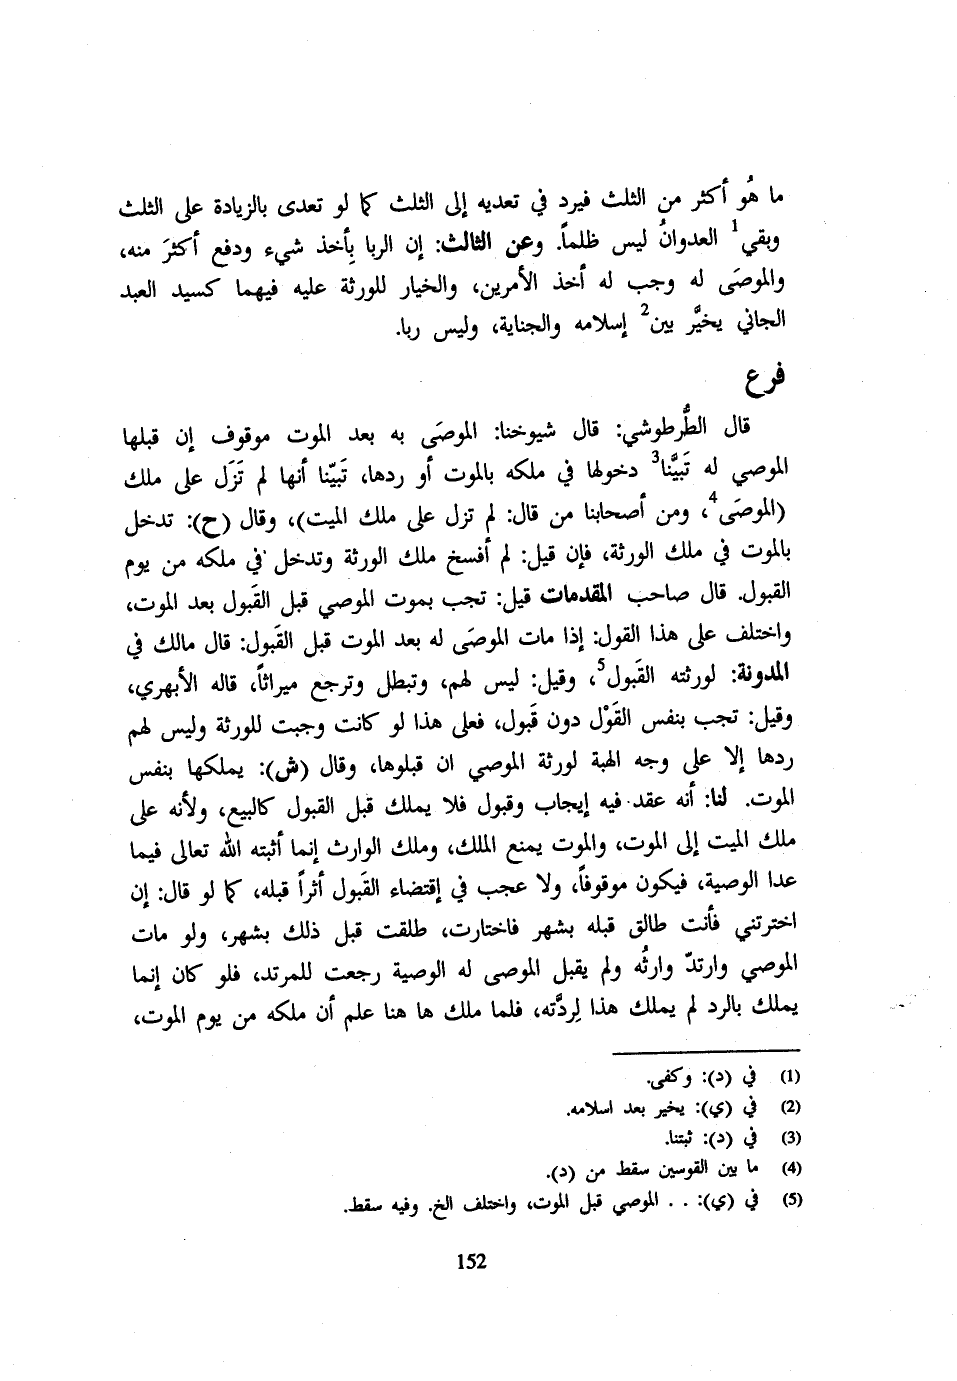 ما هُو أكثر من الثلث فيرد في تعديه إلى الثلث كما لو تعدى بالزيادة على الثلث
وبقي1 العدوانُ ليس ظلماً. وعن الثالث: إن الربا بِأخذ شيء ودفع أكثرَ منه،
والموصَى له وجب له أخذ الأمرين، والخيار للورثة عليه فيهما كسيد العبد
الجاني يخيَّر بين2 إسلامه والجناية، وليس ربا.
فرع
قال الطُّرطوشي: قال شيوخنا: الموصَى به بعد الموت موقوف إن قبلها
الموصي له تَبيَّنا3 دخولها في ملكه بالموت أو ردها، تَبيّنا أنها لم تَزَل على ملك
(الموصَى4، ومن أصحابنا من قال: لم تزل على ملك الميت)، وقال (ح): تدخل
بالموت في ملك الورثة، فإن قيل: لم أفسخ ملك الورثة وتدخل في ملكه من يوم
القبول. قال صاحب المقدمات قيل: تجب بموت الموصي قبل القَبول بعد الموت،
واختلف على هذا القول: إذا مات الموصَى له بعد الموت قبل القَبول: قال مالك في
المدونة: لورثته القَبول5، وقيل: ليس لهم، وتبطل وترجع ميراثاً، قاله الأبهري،
وقيل: تجب بنفس القَوْل دون قَبول، فعلى هذا لو كانت وجبت للورثة وليس لهم
ردها إلا على وجه الهبة لورثة الموصي ان قبلوها، وقال (ش): يملكها بنفس
الموت. لنا: أنه عقد فيه إيجاب وقبول فلا يملك قبل القبول كالبيع، ولأنه على
ملك الميت إلى الموت، والموت يمنع الملك، وملك الوارث إنما أثبته الله تعالى فيما
عدا الوصية، فيكون موقوفاً، ولا عجب في إقتضاء القَبول أثراً قبله، كما لو قال: إن
اخترتني فأنت طالق قبله بشهر فاختارت، طلقت قبل ذلك بشهر، ولو مات
الموصي وارتدّ وارثُه ولم يقبل الموصى له الوصية رجعت للمرتد، فلو كان إنما
يملك بالرد لم يملك هذا لِردَّته، فلما ملك ها هنا علم أن ملكه من يوم الموت،
(1) في (د): وكفى.
(2) في (ي): يخير بعد اسلامه.
(3) في (د): ثبتنا.
(4) ما بين القوسين سقط من (د).
(5) في (ي): . . الموصي قبل الموت، واختلف الخ. وفيه سقط.
152